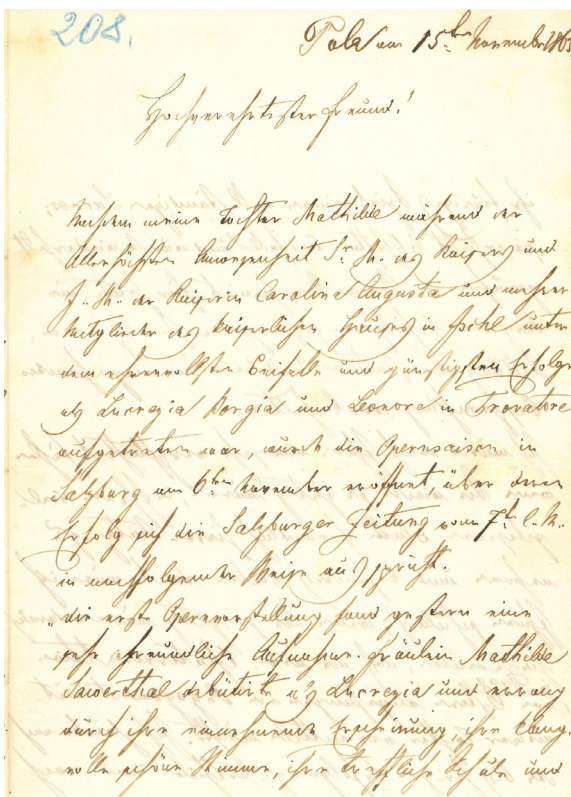 208.
Pola am 15ten November 186
Hochverehrtester Freund!
Nachdem meine Tochter Mathilde während der
Allerhöchsten Anwesenheit Sr. M. des Kaisers und
I. M. der Kaiserin Carolina Augusta und mehrer
Mitglieder des kaiserlichen Hauses in Ischl unter
dem ehrenvollsten Beifalle und günstigsten Erfolge
als Lucrezia Borgia und Leonore in Trovatore
aufgetreten war, wurde die Opernsaison in
Salzburg am 6ten November eröffnet, über deren
Erfolg sich die Salzburger Zeitung vom 7t. l. M.
in nachfolgender Weise ausspricht.
„die erste Opernvorstellung fand gestern eine
sehr freundliche Aufnahme. Fräulein Mathilde
Sawerthal debütirte als Lucrezia und errang
durch ihre einnehmende Erscheinung, ihre klang-
volle schöne Stimme, ihre treffliche Schule und